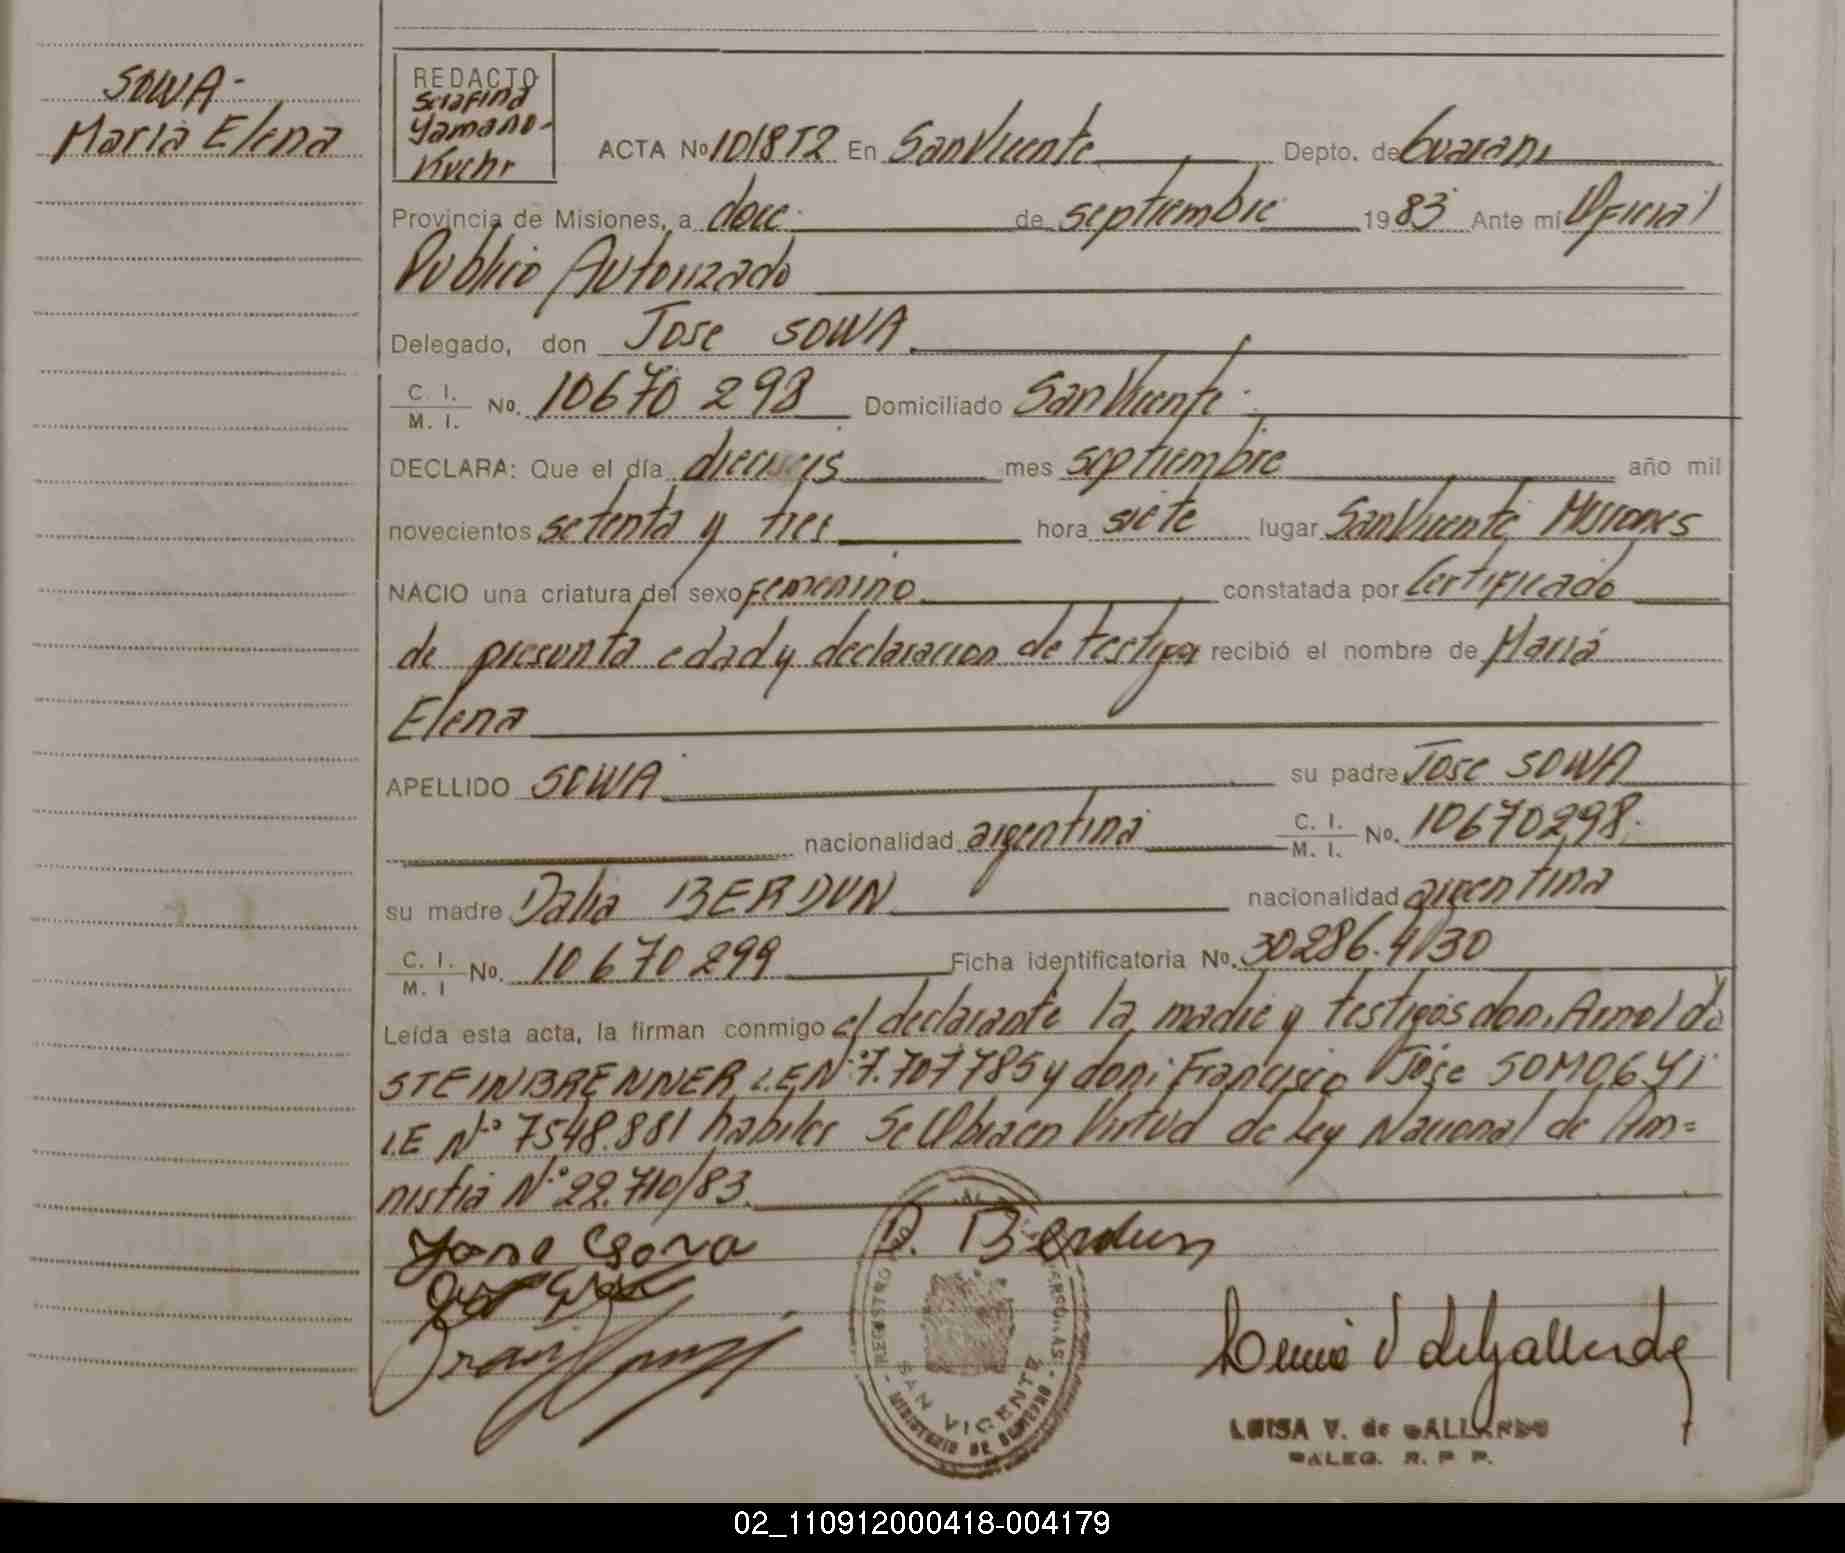 SOWA-
Maria Elena
REDACTO
Serafina
Yamano-
Kuchr
ACTA No 101812 En San Vicente Depto. de Guarani
Provincia de Misiones, a doce de septiembre 1983 Ante mi Oficial
Publico Autorizado
Delegado, don Jose SOWA
C. I. / M. I. No. 10670 298 Domiciliado San Vicente
DECLARA: Que el día dieciseis mes septiembre año mil
novecientos setenta y tres hora siete lugar San Vicente Misiones
NACIO una criatura del sexo femenino constatada por Certificado
de presunta edad y declaracion de testigos recibió el nombre de Maria
Elena
APELLIDO SOWA su padre Jose SOWA
nacionalidad argentina C. I. / M. I. No. 10670298.
su madre Dalia BERDUN nacionalidad argentina
C. I. / M. I No. 10 670 299 Ficha identificatoria No. 30286.4/30
Leída esta acta, la firman conmigo el declarante la madre y testigos don. Arnoldo
STEINBRENNER L.E N° 7.707785 y don: Francisco Jose SOMOGYI
L.E N° 7548.881 habiles Se labra en Virtud de Ley Nacional de Am=
nistia N° 22.710/83
D. Berdun
REGISTRO
PERSONAS
SAN VICENTE
MINISTERIO DE GOBIERNO
LUISA V. de GALLARDO
DALEG. R. P. P.
02_110912000418-004179